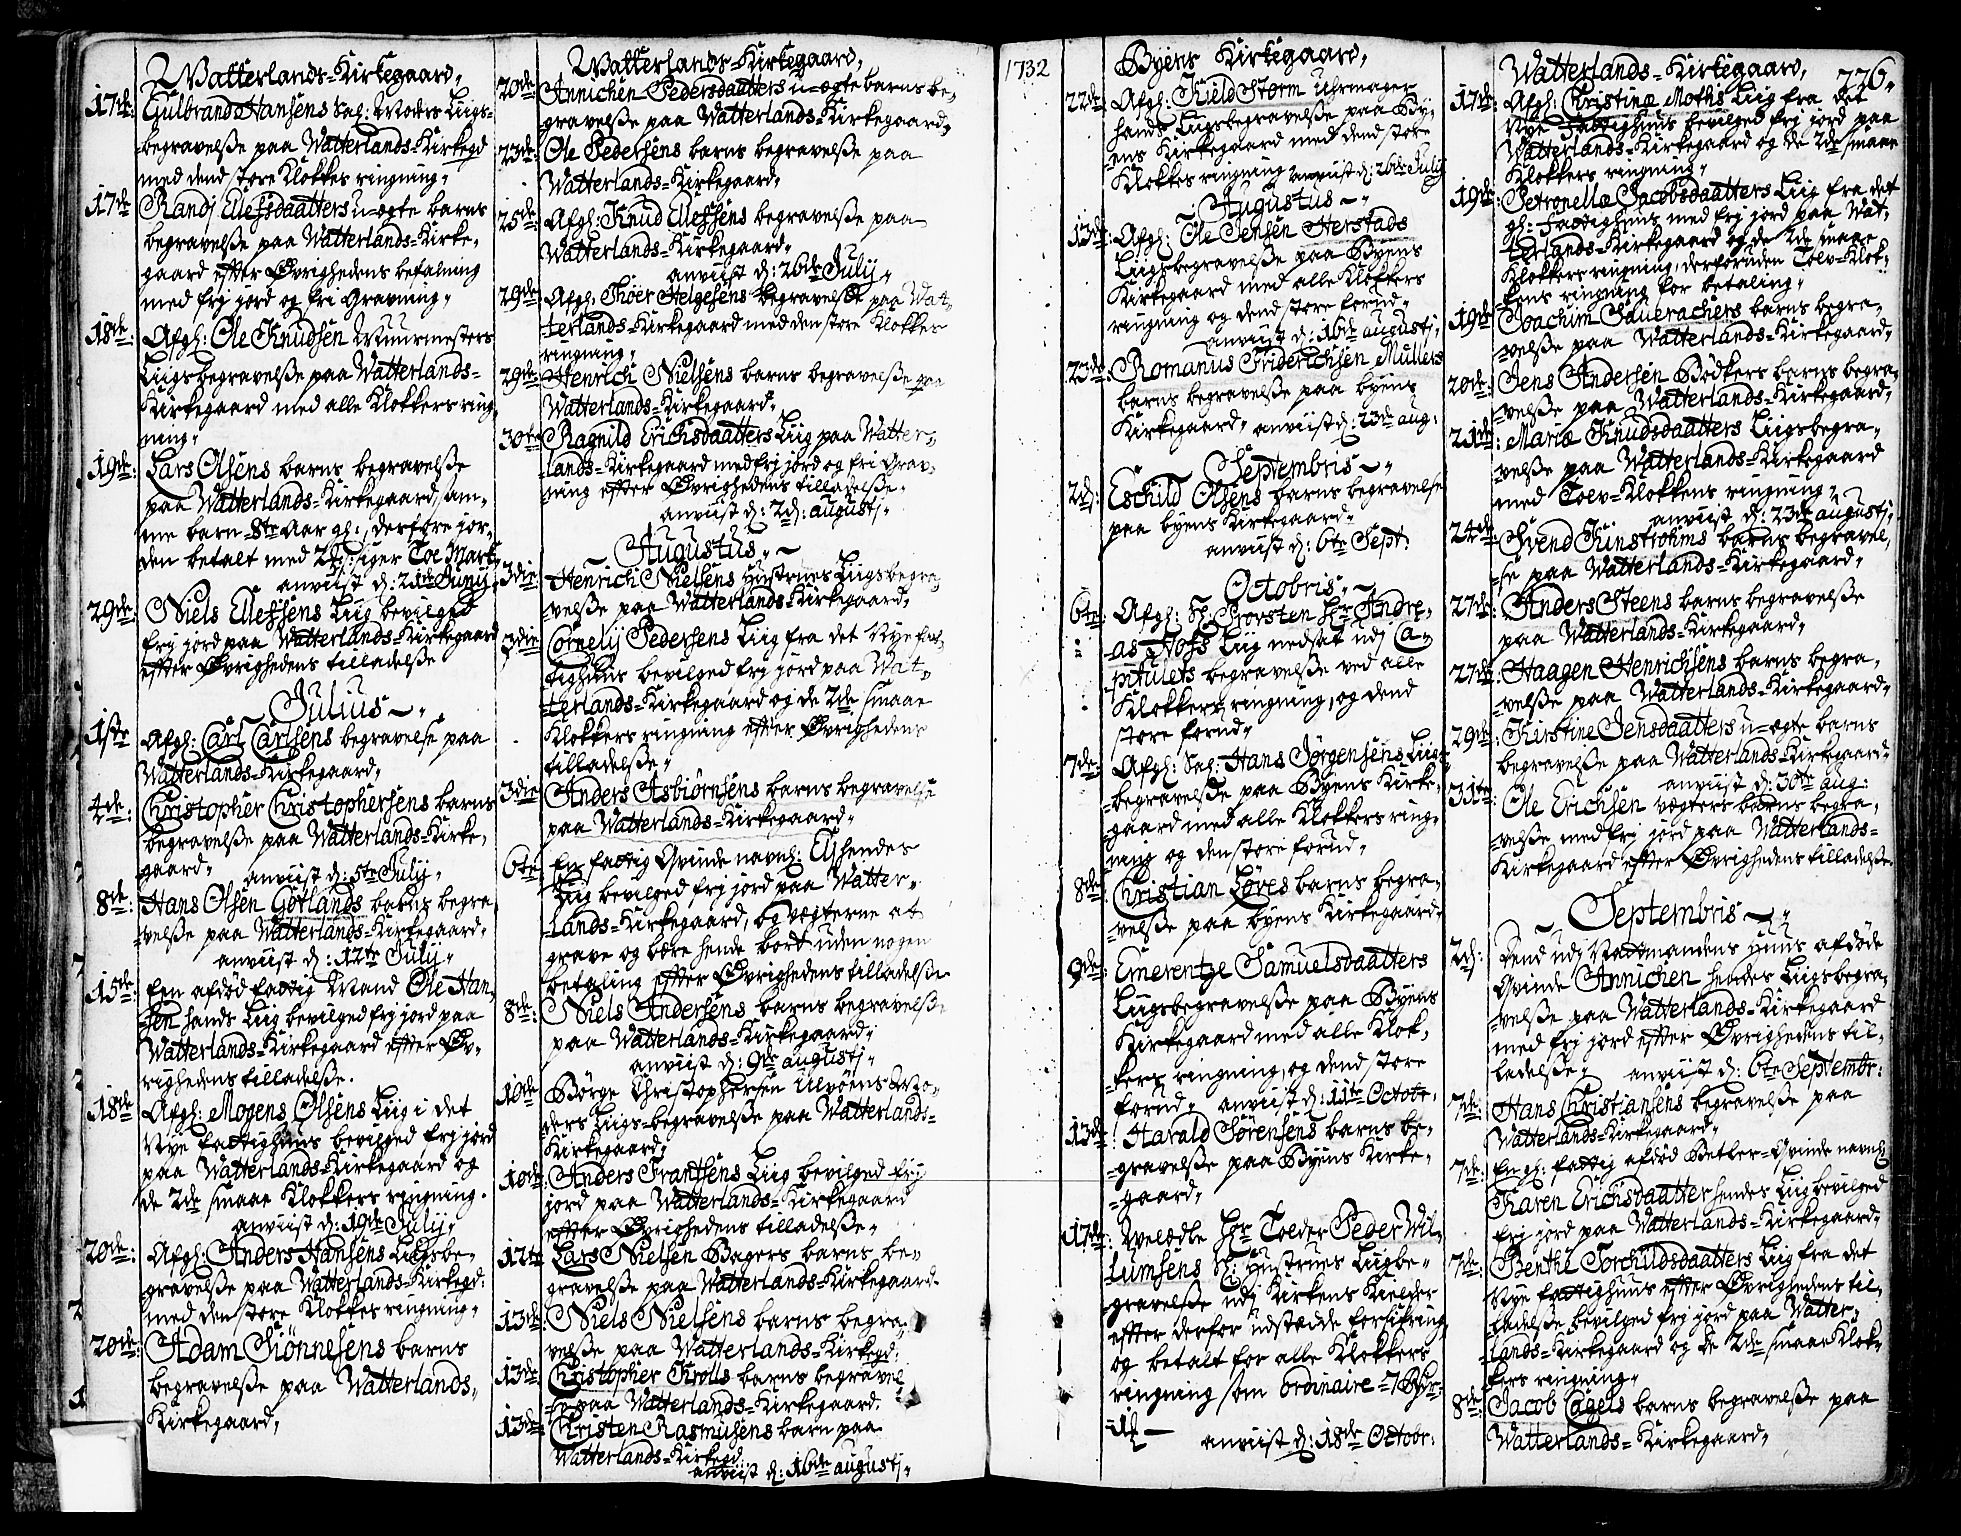 Watterlands-Kirkegaard,
17de: Gulbrand Hansens Sal: Moders Liigs-
begravelße paa Watterlands-Kirkegd
med dend store Klokkes ringning,
17de Randj Ellefsdaatters u-ægte barns
begravelße paa Watterlands-Kirke,
gaard efter Øvrighedens befalning
med frj jord og fri Gravning,
18de: Afgl: Ole Knudsen Muurmesters
Liigsbegravelße paa Watterlands-
Kirkegaard med alle Klokkers ring
ning,
19de: Lars Olsens barns begravelße
paa Watterlands-Kirkegaard, sam-
me barn 8te Aar gl:, derfore jor-
den betalt med 2 siger Toe Mark
anviist d: 21de Junij,
29de: Niels Ellefsens Liig bevilged
frj jord paa Watterlands-Kirkegaard
efter Øvrighedens tilladelße
Julius
1ste Afgl: Carl Carlsens begravelse paa
Watterlands-Kirkegaard,
4de: Christopher Christophersens barns
begravelße paa Watterlands-Kirke,
gaard, anviist d: 5te Julij,
8de: Hans Olsen Gotlands barns begra,
velße paa Watterlands-Kirkegaard,
anviist d: 12te Julij,
15de: Een afdød fattig Mand Ole Han,
sen hands Liig bevilged frj jord paa
Watterlands-Kirkegaard efter Øv-
righedens tilladelße.
18de Afgl: Mogens Olsens Liig i det
Nye Fattighuus bevilged frj jord
paa Watterlands-Kirkegaard og
de 2de smaae Klokkers ringning.
anviist d: 19de Julij,
20de: Afgl: Anders Hansens Liigsbe-
gravelße paa Watterlands-Kirkegd:
med den store Klokkes ringning,
20de: Adam Siønnesens barns
begravelße paa Watterlands,
Kirkegaard,
Watterlands-Kirkegaard,
20de Annichen Pedersdaatters u-ægte barns be,
gravelße paa Watterlands-Kirkegaard,
23de: Ole Pedersens barns begravelße paa
Watterlands-Kirkegaard,
25de: Afgl: Knud Ellefsens begravelße paa
Watterlands-Kirkegaard,
anviist d: 26de Julij,
29de: Afgl: Thoer Helgesens begravelße paa Wat,
terlands-Kirkegaard med den store Klokkes
ringning,
29de: Henrich Nielsens barns begravelße paa
Watterlands-Kirkegaard,
30te: Ragnild Erichsdaatters Liig paa Watter,
lands-Kirkegaard med frj jord og fri Grav,
ning efter Øvrighedens tilladelße.
anviist d: 2d: augustj,
Augustus,
3die: Henrich Nielsens Hustrues Liigsbegra,
velße paa Watterlands-Kirkegaard,
3die: Cornelij Pedersens Liig fra det Nye Fat,
tighuus bevilged frj jord paa Wat,
terlands-Kirkegaard og de 2de smaae
Klokkers ringning efter Øvrighedens
tilladelße,
3die Anders Asbiørnsens barns begravelße
paa Watterlands-Kirkegaard,
6te En fattig Qvinde navnl: Elj hendes
Liig bevilged frj jord paa Watter,
lands-Kirkegaard, og vægterne at
grave og bære hende bort uden nogen
betaling efter Øvrighedens tilladelße
8de: Niels Andersens barns begravelße
paa Watterlands-Kirkegaard,
anviist d: 9de augustj,
10de Børge Christophersen Ulvøens Mo,
ders Liigs-begravelße paa Watterlands-
Kirkegaard,
10de: Anders Frantsens Liig bevilged frj
jord paa Watterlands-Kirkegaard
efter Øvrighedens tilladelße,
12te Lars Nielsen Bagers barns be-
gravelße paa Watterlands-Kirkegaard.
13de: Niels Nielsens barns begra,
velße paa Watterlands-Kirkegd:
13de: Christopher Krolls barns begravel
se paa Watterlands-Kirkegaard.
13de: Christen Rasmusens barn paa
Watterlands-Kirkegd
anviist d: 16de augustj,
1732
Byens Kirkegaard,
22de: Afgl: Kield Storm Uhrmager
hands Liigsbegravelße paa By,
ens Kirkegaard med dend store
Klokkes ringning anviist d: 26de Julij
Augustus
13de: Afgl: Ole Jensen Herstads
Liigsbegravelße paa Byens
Kirkegaard med alle Klokkers
ringning og dend store forud,
anviist d: 16de augustj,
23de: Romanus Friderichsen Mullers
barns begravelße paa byens
Kirkegaard, anviist d: 23de aug:
Septembris
2d: Eschild Olsens barns begravelße
paa byens Kirkegaard,
anviist d: 6te Sept:
Octobris
6te: Afgl: Hr Provsten Hr Andre,
as Hofs Liig nedsat udj Ca,
pitulets begravelße ved alle
Klokkers ringning, og dend
store forud,
7de: Afgl: Sal: Hans Jørgensens Liigs-
begravelße paa Byens Kirke-
gaard med alle Klokkers ring,
ning og den store forud,
8de Christian Løves barns begra-
velße paa byens Kirkegaard,
9de: Emerentze Samuelsdaatters
Liigsbegravelße paa Byens
Kirkegaard med alle Klok,
kers ringning, og dend store
forud, anviist d: 11te Octobr:
13de: Harald Sørensens barns be-
gravelße paa Byens Kirke-
gaard,
17de: Welædle Hr Toeder Peder Wil,
lumsens Hustrues Liigbe-
gravelße udj Kirkens Kielder
efter derfor udstædde forsikring
og betalt for alle Klokkers
ringning som ordinaire
anviist d: 18de Octobr:
Watterlands-Kirkegaard, 226.
17de: Afgl: Christinæ Moths Liig fra det
Nye Fattighuus bevilged frj jord paa
Watterlands-Kirkegaard og de 2de smaae
Klokkers ringning,
19de: Petronellæ Jacobsdaatters Liig fra det
gl: Fattighuus med frj jord paa Wat,
terlands-Kirkegaard og de 2de smaae
Klokkers ringning, derforuden Tolv-Klok-
kens ringning for betaling,
19de Joachim Sauerachers barns begra,
velße paa Watterlands-Kirkegaard,
20de: Jens Andersen Bødkers barns begra,
velße paa Watterlands-Kirkegaard,
21de: Mariæ Knudsdaatters Liigsbegra-
velße paa Watterlands-Kirkegaard
med Tolv-Klokkens ringning,
anviist d: 23de augustj,
24de: Svend Kunstrohms barns begravel,
se paa Watterlands-Kirkegaard,
27de: Anders Steens barns begravelße
paa Watterlands-Kirkegaard,
27de: Haagen Henrichsens barns begra,
velße paa Watterlands-Kirkegaard,
29de: Kirstine Jensdaatters u-ægte barns
begravelße paa Watterlands-Kirkegaard,
anviist d: 30te aug:
31te: Ole Erichsen vægters barns begra,
velße med frj jord paa Watterlands-
Kirkegaard efter Øvrighedens tilladelße.
Septembris
2d: Dend udj Natmandens Huus afdøde
Qvinde Annichen hendes Liigsbegra,
velße paa Watterlands-Kirkegaard
med frj jord efter Øvrighedens til,
ladelße, anviist d: 6te Septembr:
7de: Hans Christiansens begravelße paa
Watterlands-Kirkegaard,
7de: En gl: fattig afdød Betler-Qvinde navnl
Karen Erichsdaatter hendes Liig bevilged
frj jord paa Watterlands-Kirkegaard,
7de: Benthe Torchildsdaatters Liig fra det
Nye fattighuus efter Øvrighedens til,
ladelße bevilged frj jord paa Watter,
lands-Kirkegaard og de 2de smaae Klok,
kers ringning,
8de: Jacob Cagels barns begravelße paa
Watterlands-Kirkegaard,